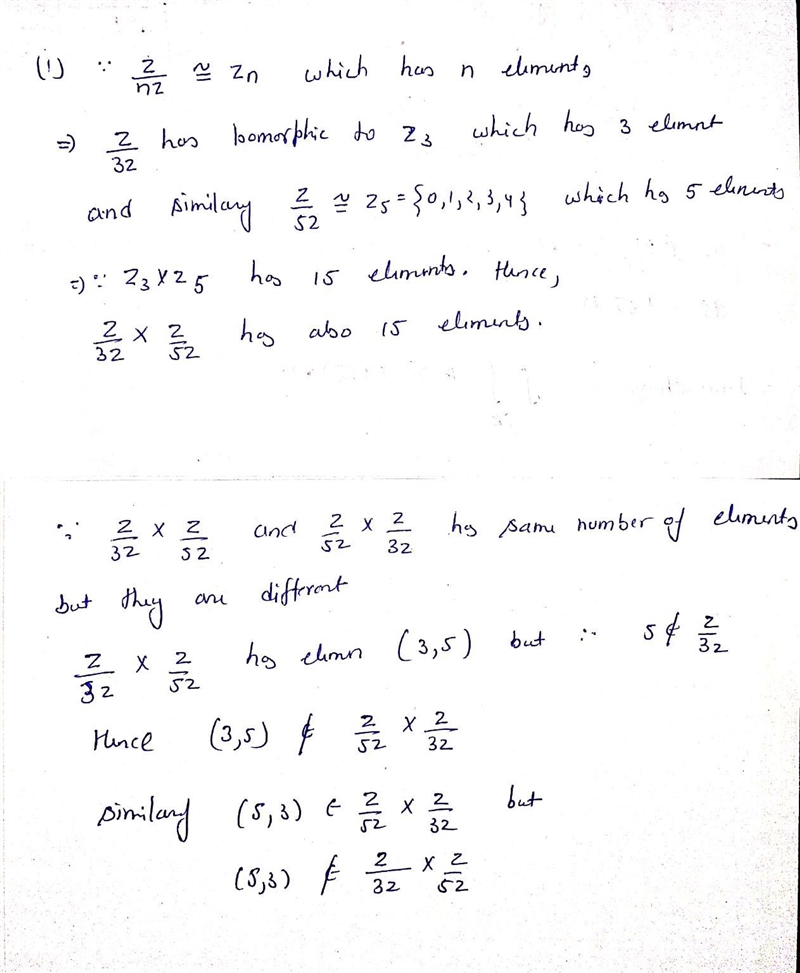 (1) ∵ Z/nZ ≅ Zn which has n elements
⇒ Z/3Z has Isomorphic to Z3 which has 3 elemnt
and similary Z/5Z ≅ Z5 = {0,1,2,3,4} which hs 5 elements
⇒ ∵ Z3 X Z5 has 15 elements. Hence,
Z/3Z X Z/5Z hs also 15 elements.
∵ Z/3Z X Z/5Z and Z/5Z X Z/3Z hs same number of elements
but they are different
Z/3Z X Z/5Z hs elemn (3,5) but ∴ 5 ∉ Z/3Z
Hence (3,5) ∉ Z/5Z X Z/3Z
similary (5,3) ∈ Z/5Z X Z/3Z but
(5,3) ∉ Z/3Z X Z/5Z